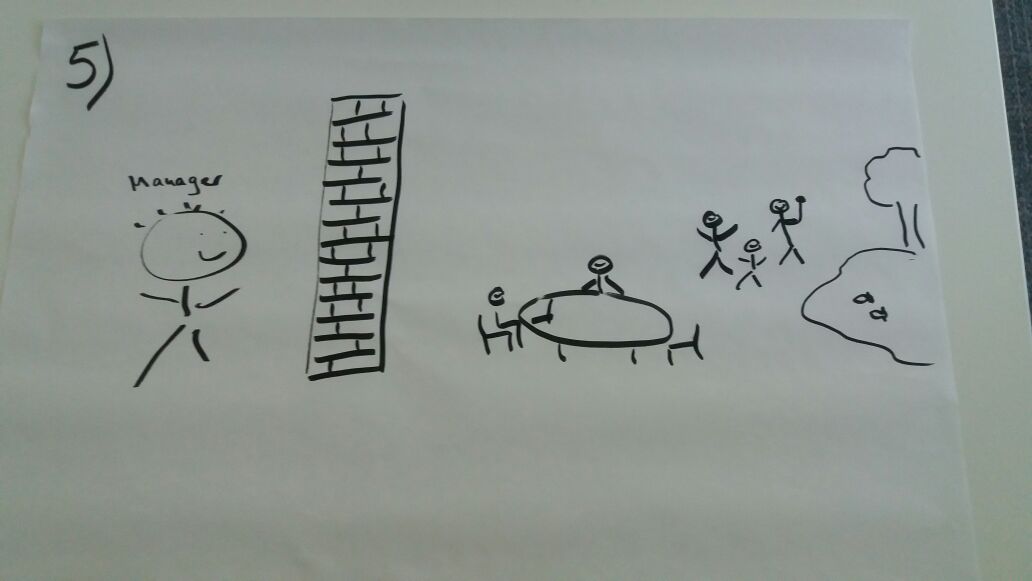 5)
Manager